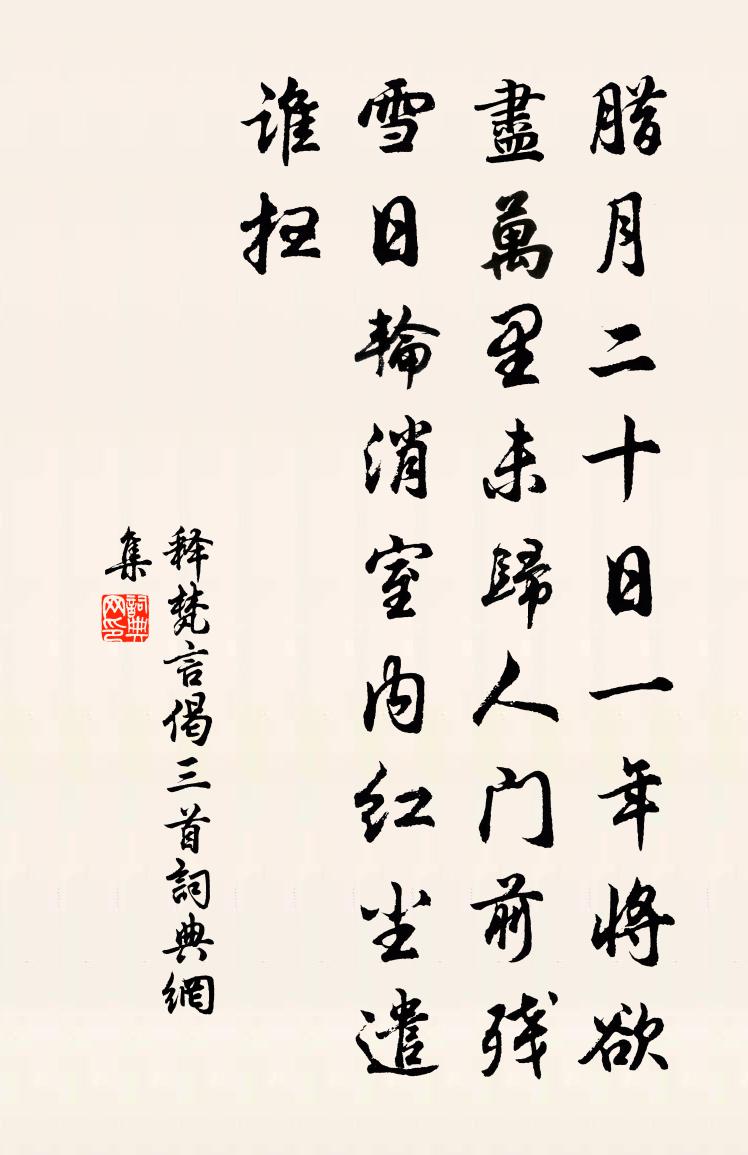 腊月二十日一年将欲
盡萬里未歸人门前残
雪日輪消室内红尘遣
谁扫
释梵言偈三首詞典網
集
詞典
网印